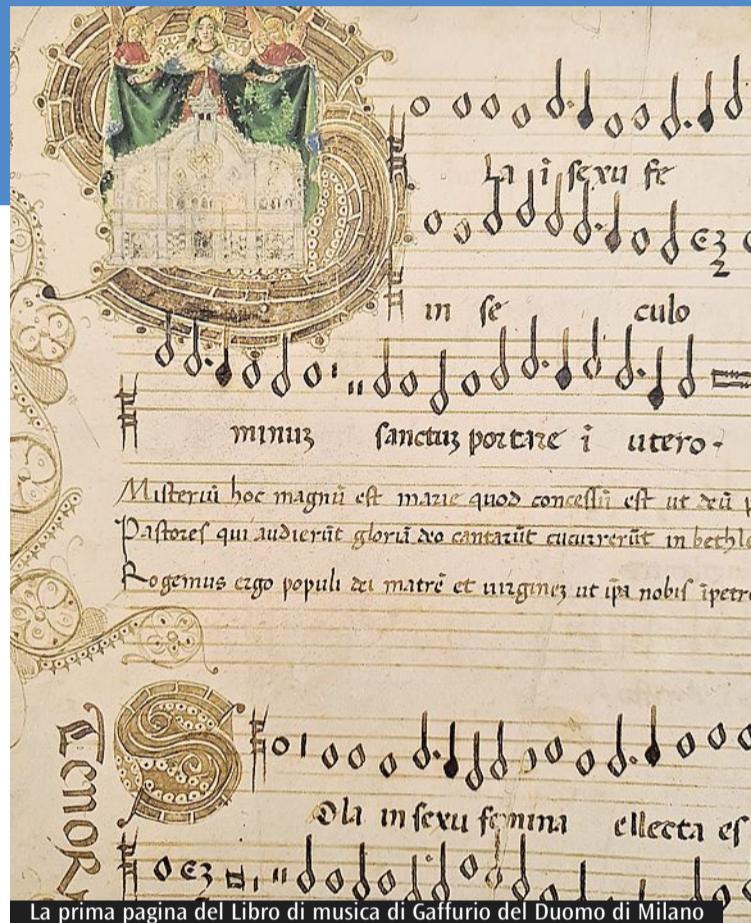 La ī sexu fe
in se culo
minuʒ sanctuʒ portare ī utero.
Misteriū hoc magnū est marie quod concessū est ut deū p
Pastores qui audierūt gloriā deo cantarūt cucurrerūt in bethle
Rogemus ergo populi dei matrē et uirgineʒ ut ip̄a nobis īpetre
Tenor
S
Ola in sexu femina ellecta es
La prima pagina del Libro di musica di Gaffurio del Duomo di Milano